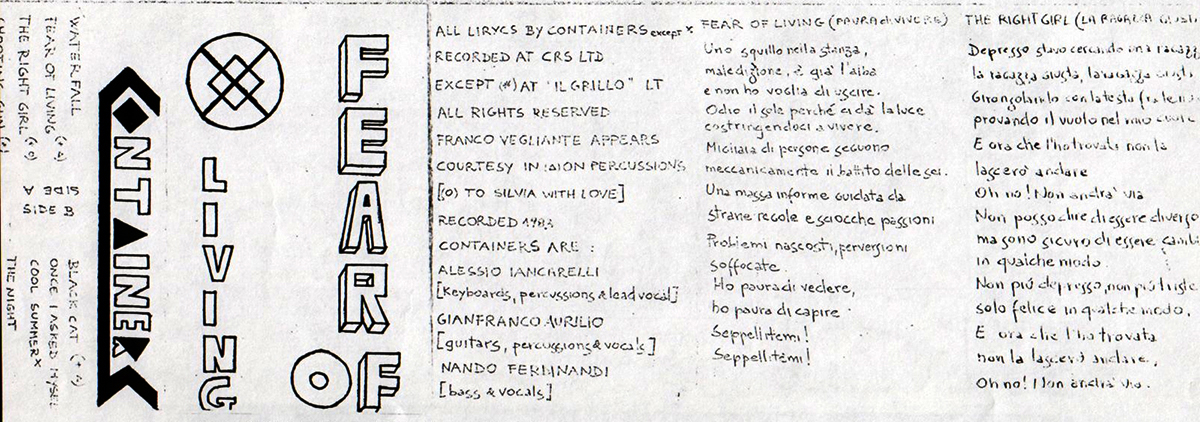 WATERFALL
FEAR OF LIVING (+ *)
THE RIGHT GIRL (+ o)
SIDE A
SIDE B
BLACK CAT (+ *)
ONCE I ASKED MYSEL
COOL SUMMER X
THE NIGHT
CONTAINERS
FEAR OF
LIVING
ALL LIRYCS BY CONTAINERS except X
RECORDED AT CRS LTD
EXCEPT (*) AT "IL GRILLO" LT
ALL RIGHTS RESERVED
FRANCO VEGLIANTE APPEARS
COURTESY IN PERCUSSIONS
[(o) TO SILVIA WITH LOVE]
RECORDED 1983
CONTAINERS ARE :
ALESSIO IANCARELLI
[Keyboards, percussions & lead vocal]
GIANFRANCO AURILIO
[guitars, percussions & vocals]
NANDO FERDINANDI
[bass & vocals]
FEAR OF LIVING (PAURA di VIVERE)
Uno squillo nella stanza,
maledizione, è già l'alba
e non ho voglia di uscire.
Odio il sole perché ci dà la luce
costringendoci a vivere.
Migliaia di persone seguono
meccanicamente il battito delle sei.
Una massa informe guidata da
strane regole e sciocche passioni
Problemi nascosti, perversioni
soffocate.
Ho paura di vedere,
ho paura di capire
Seppellitemi!
Seppellitemi!
THE RIGHT GIRL (LA RAGAZZA GIUSTA
Depresso stavo cercando una ragazza
la ragazza giusta, la ragazza giusta,
Girongolando con la testa fra le
provando il vuoto nel mio cuore
E ora che l'ho trovata non la
lascerò andare
Oh no! Non andrà via
Non posso dire di essere diverso
ma sono sicuro di essere cambi
in qualche modo.
Non più depresso, non più triste
solo felice in qualche modo,
E ora che l'ho trovata
non la lascerò andare,
Oh no! Non andrà via.